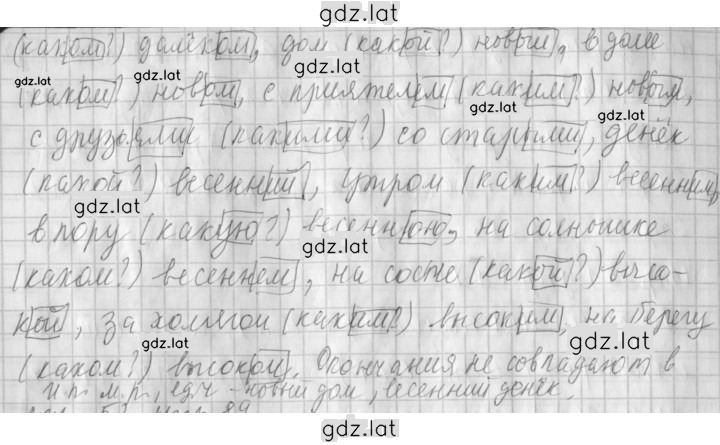 gdz.lat
(каком?) далёком, дом (какой?) новый, в доме
gdz.lat gdz.lat gdz.lat
(каком?) новом, с приятелем (каким?) новым,
gdz.lat gdz.lat
с друзьями (какими?) со старыми, денёк
(какой?) весенний, утром (каким?) весенним,
gdz.lat
в пору (какую?) весеннюю, на солнышке
gdz.lat
(каком?) весеннем, на сосне (какой?) высо-
gdz.lat
кой, за холмом (каким?) высоким, на берегу
gdz.lat gdz.lat
(каком?) высоком. Окончания не совпадают в
и.п. м.р., ед.ч - новый дом, весенний денёк.
gdz.lat